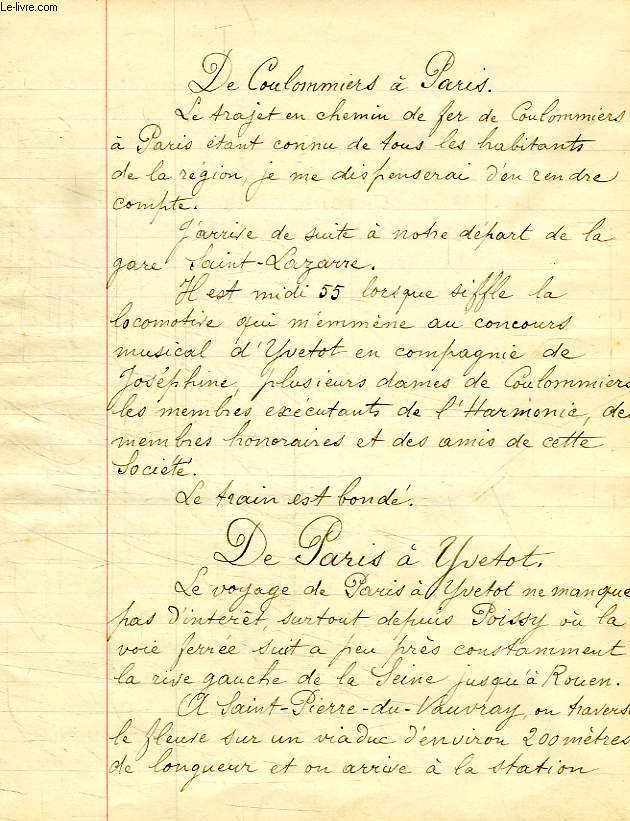 Le-livre.com
De Coulommiers à Paris.
Le trajet en chemin de fer de Coulommiers
à Paris étant connu de tous les habitants
de la région, je me dispenserai d'en rendre
compte.
J'arrive de suite à notre départ de la
gare Saint-Lazarre.
Il est midi 55 lorsque siffle la
locomotive qui m'emmène au concours
musical d'Yvetot en compagnie de
Joséphine, plusieurs dames de Coulommiers
les membres exécutants de l'Harmonie, des
membres honoraires et des amis de cette
Société.
Le train est bondé.
De Paris à Yvetot.
Le voyage de Paris à Yvetot ne manque
pas d'intérêt, surtout depuis Poissy où la
voie ferrée suit a peu près constamment
la rive gauche de la Seine jusqu'à Rouen.
A Saint-Pierre-du-Vauvray, on travers
le fleuve sur un viaduc d'environ 200 mètres
de longueur et on arrive à la station